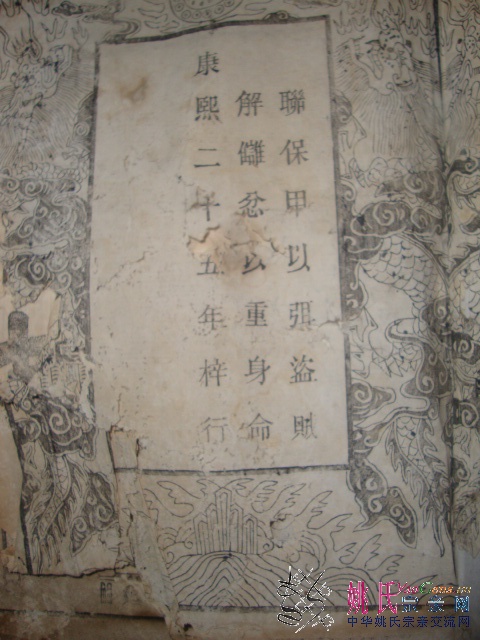 聯保甲以弭盜賊
解讎忿以重身命
康熙二十五年梓行
姚氏宗亲网
中华姚氏宗亲交流网